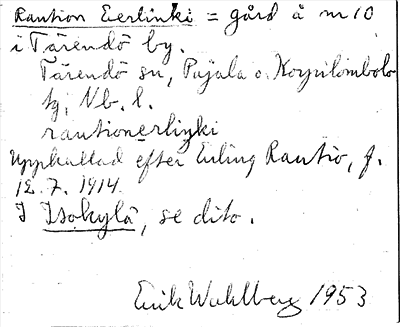 Raution Eerlinki = gård å nr 10
i Tärendö by.
Tärendö sn, Pajala o. Korpilombolo
tg, Nb. l.
rautionerliŋki
Uppkallad efter Erling Rautio, f.
12. 7. 1914.
I Isokylä, se dito.
Erik Wahlberg 1953